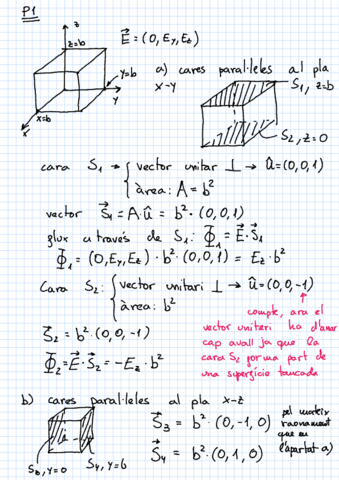 P1
z
z=b
E⃗ = (0, Ey, Ez)
y=b
y
x=b
x
a) cares paral·leles al pla
x-y
S1, z=b
S2, z=0
cara S1 → { vector unitar ⊥ → û=(0,0,1)
àrea: A = b²
vector S⃗1 = A·û = b²·(0,0,1)
flux a través de S1: Φ⃗1 = E⃗·S⃗1
Φ⃗1 = (0,Ey,Ez)·b²·(0,0,1) = Ez·b²
Cara S2: { vector unitari ⊥ → û=(0,0,-1)
àrea: b²
compte, ara el
vector unitari ha d'anar
cap avall ja que la
cara S2 forma part de
una superfície tancada
S⃗2 = b²·(0,0,-1)
Φ⃗2 = E⃗·S⃗2 = -Ez·b²
b) cares paral·leles al pla x-z
S3, y=0
S4, y=b
S⃗3 = b²·(0,-1,0)
S⃗4 = b²·(0,1,0)
pel mateix
raonament
que en
l'apartat a)